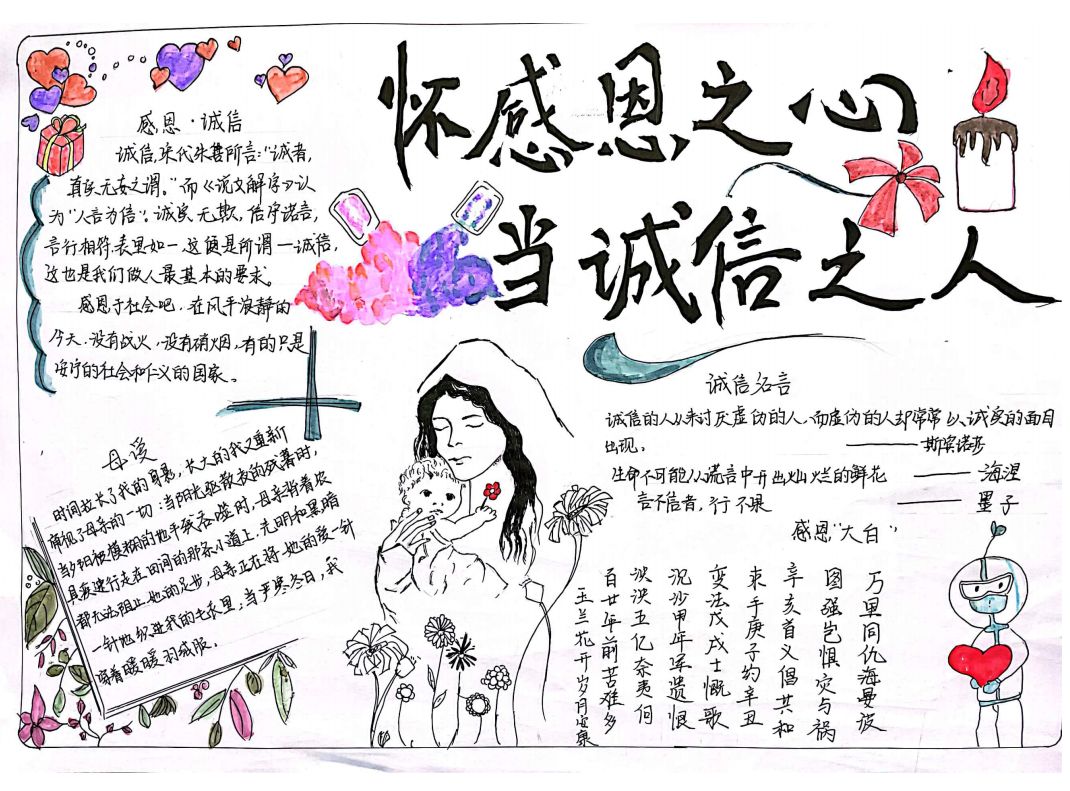 怀感恩之心
当诚信之人
感恩·诚信
诚信,宋代朱熹所言:“诚者,
真实无妄之谓。”而《说文解字》认
为“人言为信”。诚实、无欺、信守诺言,
言行相符、表里如一,这便是所谓一诚信,
这也是我们做人最基本的要求。
感恩于社会吧,在风平浪静的
今天,没有战火,没有硝烟,有的只是
安宁的社会和仁义的国家。
母爱
时间拉长了我的身影,长大的我又重新
审视了母亲的一切:当阳光驱散夜的残暑时,
当夕阳被模糊的地平线吞噬时,母亲背着农
具要进行走在田间的那条小道上,光明和黑暗
都无法阻止她的足步,母亲正在将她的爱一针
一针地织进我的毛衣里,当平寒冬日,我
穿着暖暖羽绒服。
诚信名言
诚信的人从来讨厌虚伪的人,而虚伪的人却常常以诚实的面目
出现。 ——斯宾诺莎
生命不可能从谎言中开出灿烂的鲜花 ——海涅
言不信者,行不果 ——墨子
感恩“大白”
万里同仇海晏波
图强岂惧灾与祸
辛亥首义倡共和
束手庚子约辛丑
变法戊戌士慨歌
沉沙甲午军遗恨
泱泱五亿奈夷何
百廿年前苦难多
玉兰花开岁月